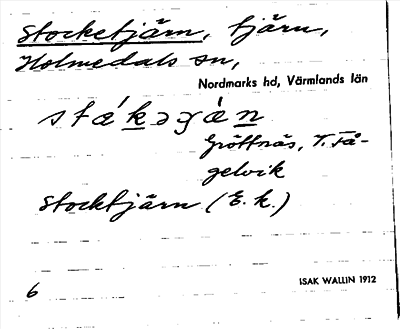 Stocketjärn, tjärn,
Holmedals sn,
Nordmarks hd, Värmlands län
Gröttnäs, T. Få-
gelvik
Stocktjärn (E. k.)
6
ISAK WALLIN 1912